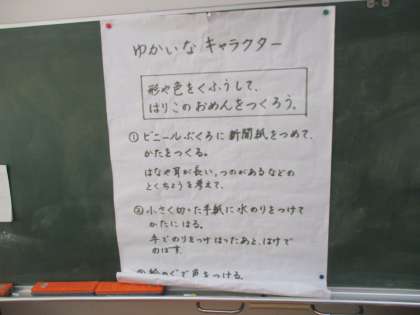 ゆかいな キャラクター
形や色をくふうして、
はりこのおめんをつくろう。
① ビニールぶくろに新聞紙をつめて、
かたをつくる。
はなや耳が長い、つのがあるなどの
とくちょうを考えて、
② 小さく切った手紙に水のりをつけて
かたにはる。
手でのりをつけはったあと、はけで
のばす。
③ 絵のぐで色をつける。